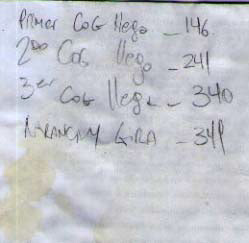 Primer CoG llega - 146
2do CoG llega - 241
3er CoG llega - 340
GIRA - 341